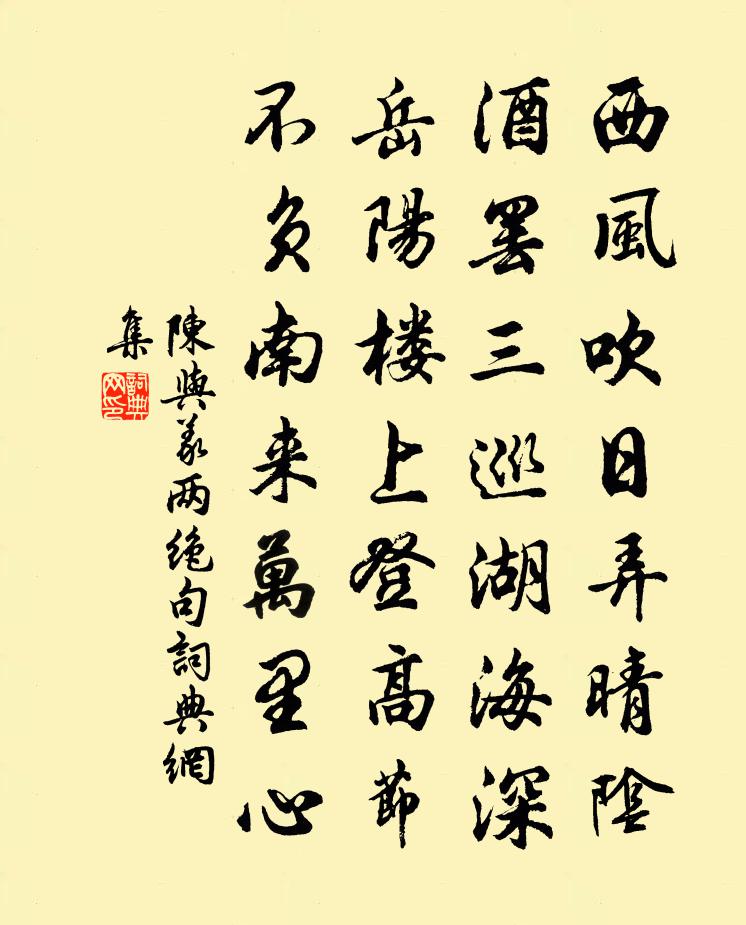 西風吹日弄晴陰
酒罢三巡湖海深
岳陽楼上登高節
不負南来萬里心
陳與義两绝句詞典網
集
詞典
网印